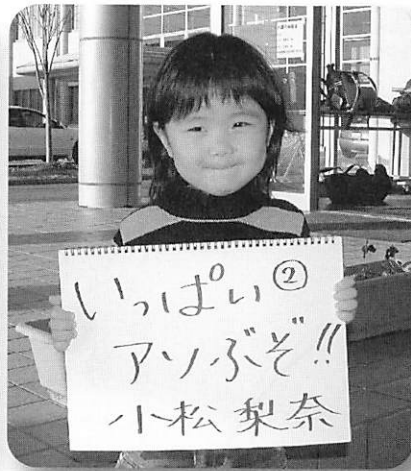 いっぱい②
アソぶぞ!!
小松梨奈